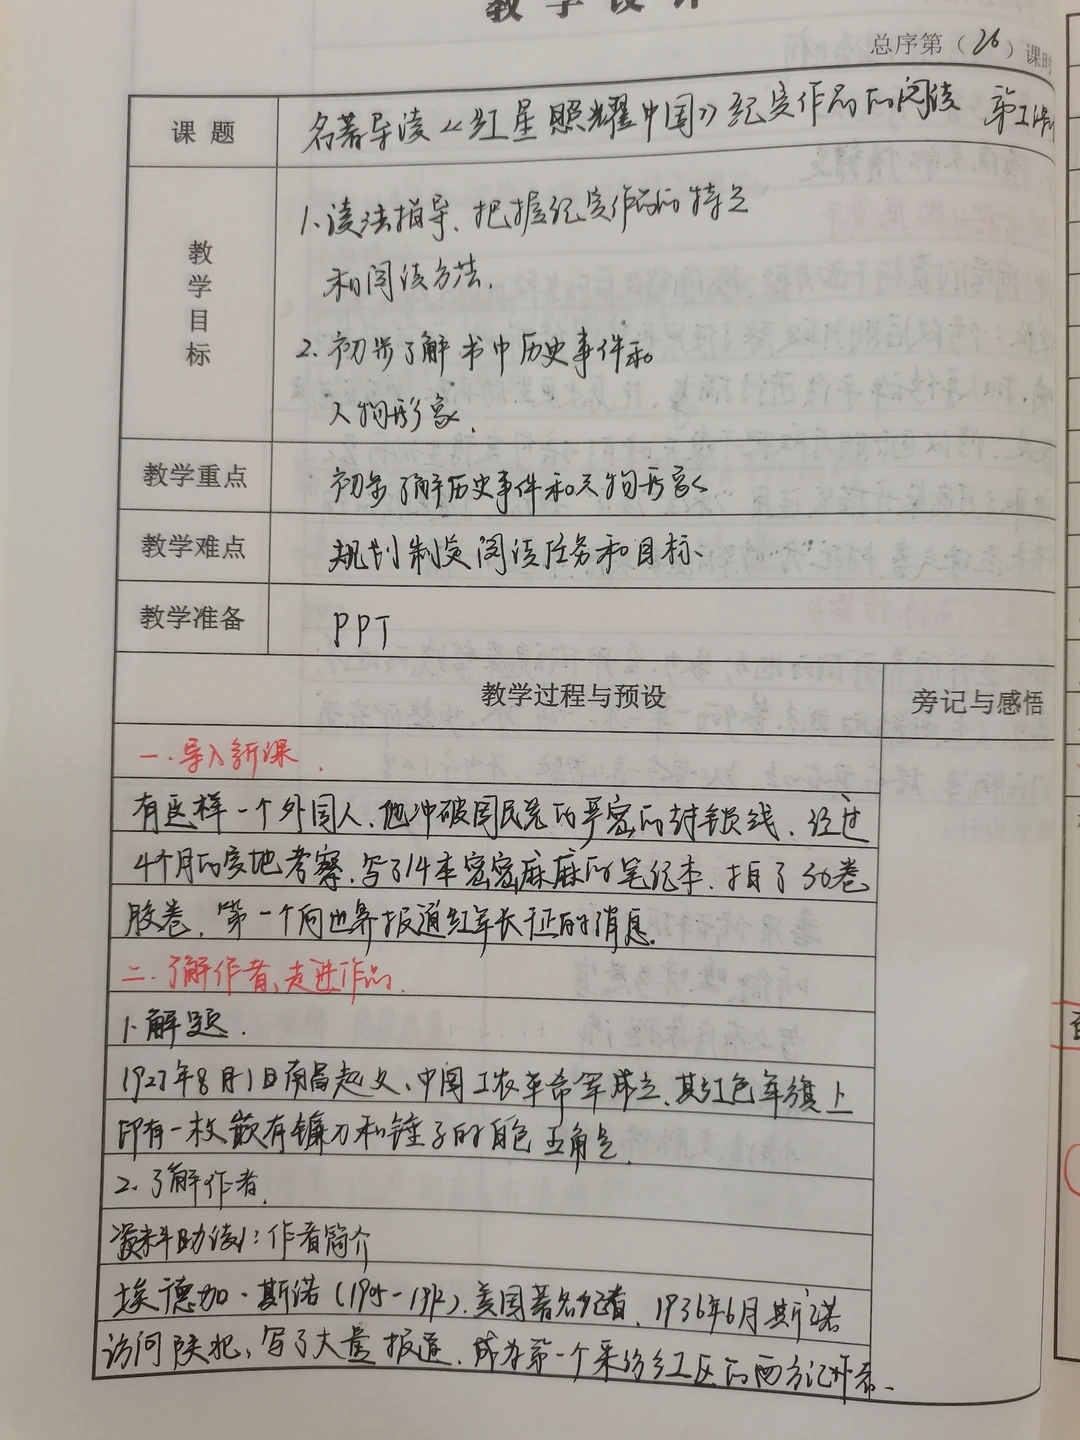 教学设计
总序第（26）课时
课题
名著导读《红星照耀中国》纪实作品的阅读 第1课时
教学目标
1.读法指导、把握纪实作品的特点
和阅读方法.
2.初步了解书中历史事件和
人物形象.
教学重点
初步了解历史事件和人物形象
教学难点
规划制定阅读任务和目标、
教学准备
PPT
教学过程与预设
旁记与感悟
一.导入新课.
有这样一个外国人、他冲破国民党的严密的封锁线、经过
4个月的实地考察、写了14本密密麻麻的笔纪本、拍了30卷
胶卷，第一个向世界报道红军长征的消息.
二.了解作者、走进作品.
1.解题.
1927年8月1日南昌起义、中国工农革命军成立、其红色军旗上
印有一枚嵌有镰刀和锤子的白色五角星.
2.了解作者.
资料助读1：作者简介
埃德加·斯诺（1905-1972）.美国著名记者、1936年6月斯诺
访问陕北，写了大量报道、成为第一个采访红区的西方记者、